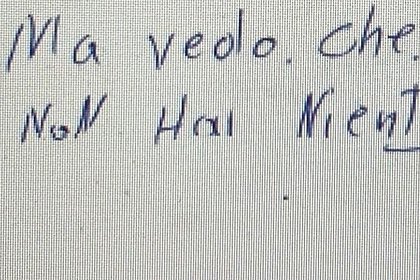 Ma vedo. che.
NoN Hai Nient